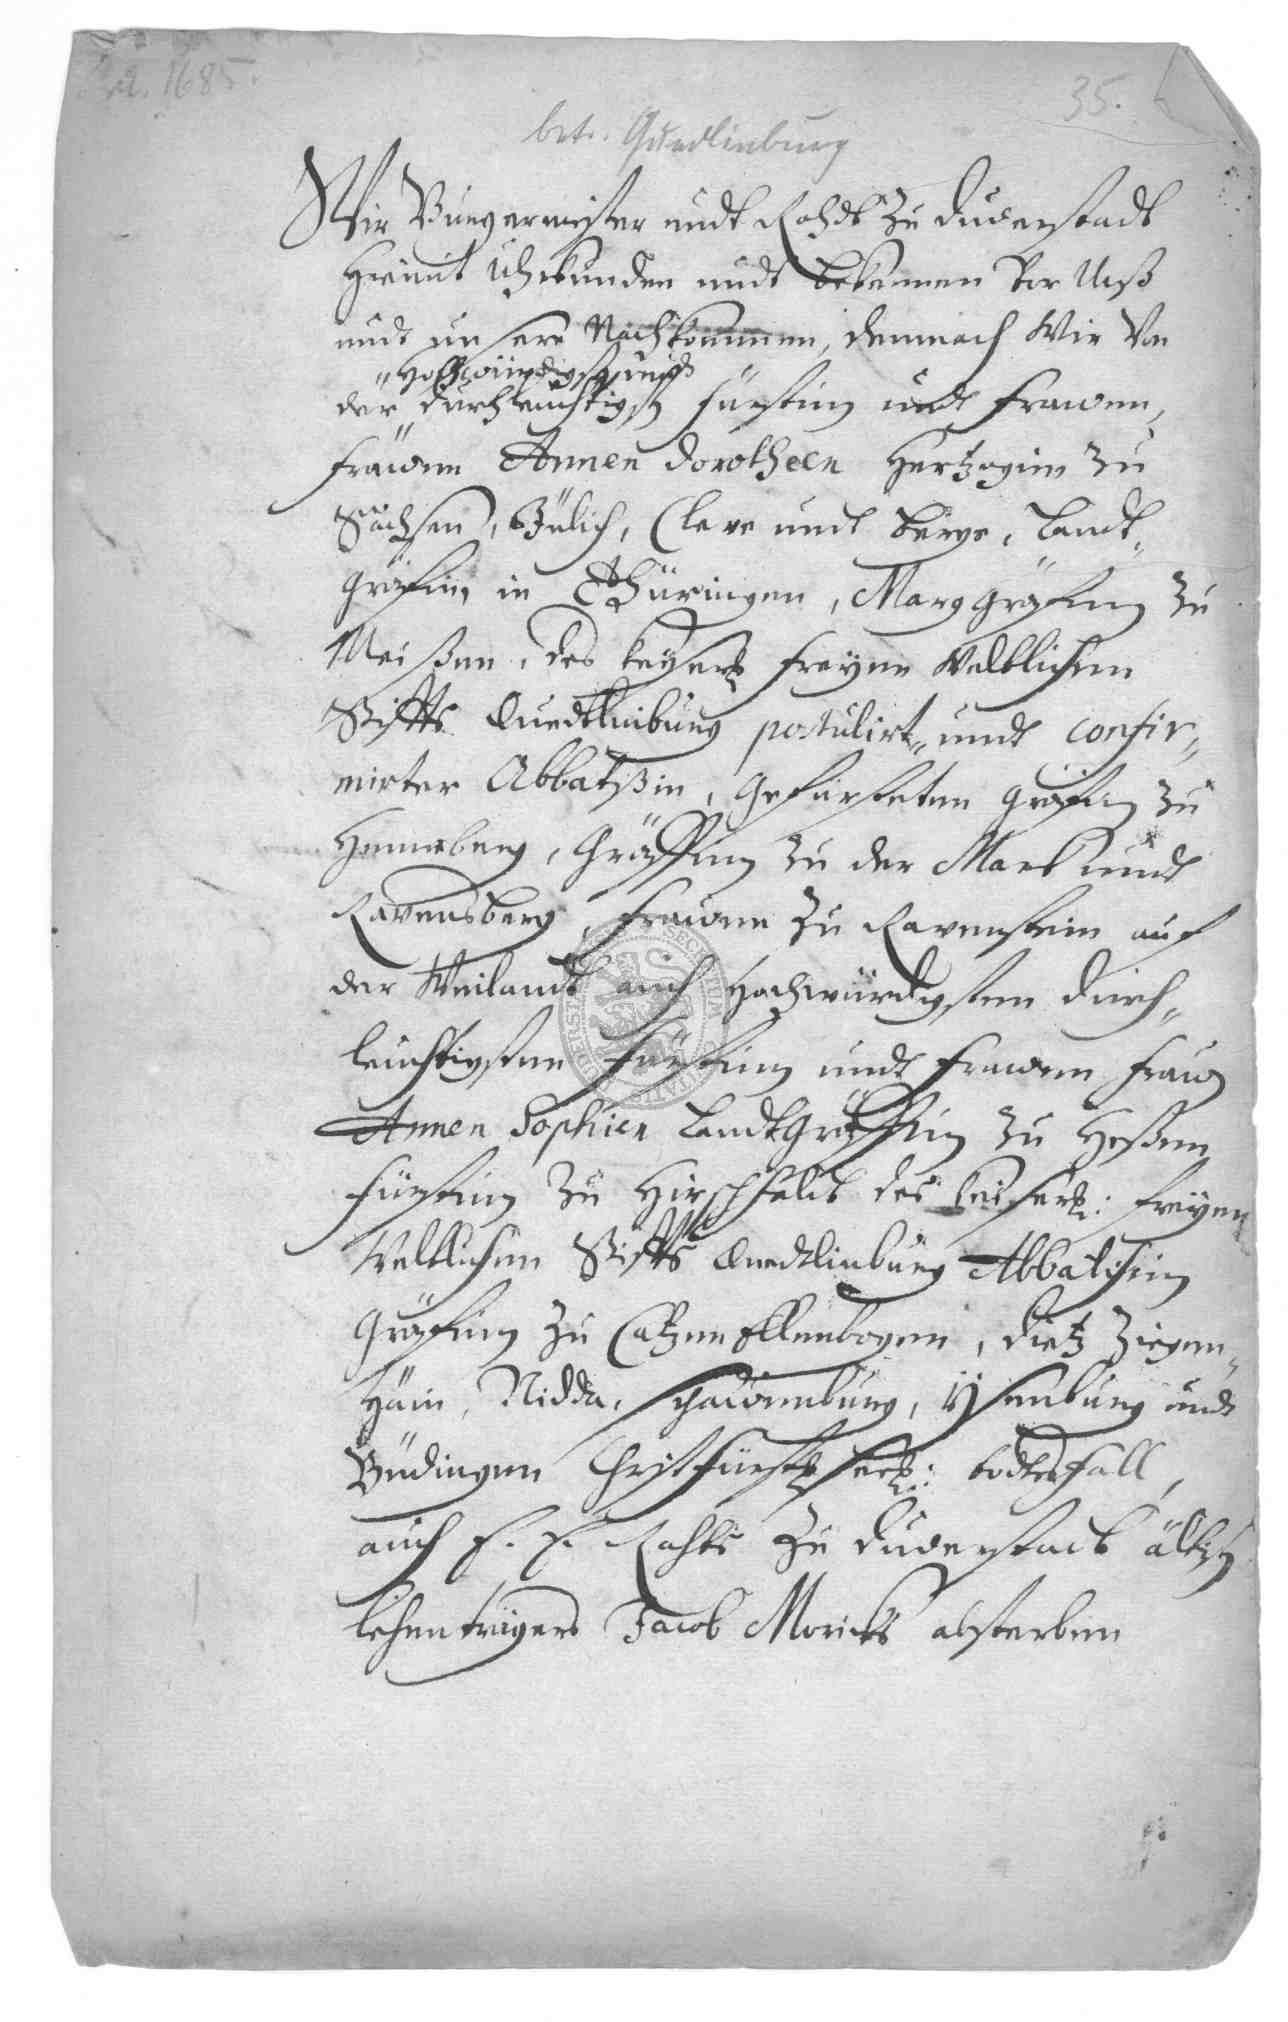 a. 1685.
35.
betr. Quedlinburg
Wir Bürgermeister undt Rahdt zu Duderstadt
Hiemit Uhrkunden undt bekennen vor Unß
undt unsere Nachkommen, demnach Wir von
Hochwürdigst undt
der Durchleuchtigst Fürstin undt Frawen,
Frawen Annen Dorotheen Hertzogin zu
Sachsen, Jülich, Cleve undt Berge, Landt„
gräfin in Thüringen, Marggräfin zu
Meißen, des keyserl. freyen Weltlichen
Stiffts Quedtlinburg postulirt„ undt confir„
mirter Abbatißin, Gefürsteten Gräfin zu
Henneberg, Gräffin zu der Marck undt
Ravensberg, Frawen zu Ravenstein auf
der Weilandt auch Hochwürdigsten Durch„
leuchtigsten Fürstin undt Frawen Fraw
Annen Sophien Landtgräffin zu Heßen
Fürstin zu Hirschfeldt des keiserl: freyen
Weltlichen Stiffts Quedtlinburg Abbatißin
Gräfin zu Catzen Ellenbogen, Dietz Ziegen„
hain, Nidda, Schawenburg, Ysenburg undt
Büdingen Christfürstl seel: todtesfall,
auch E. E. Rahts zu Duderstadt ältist
lehenträgers Jacob Moricks absterben